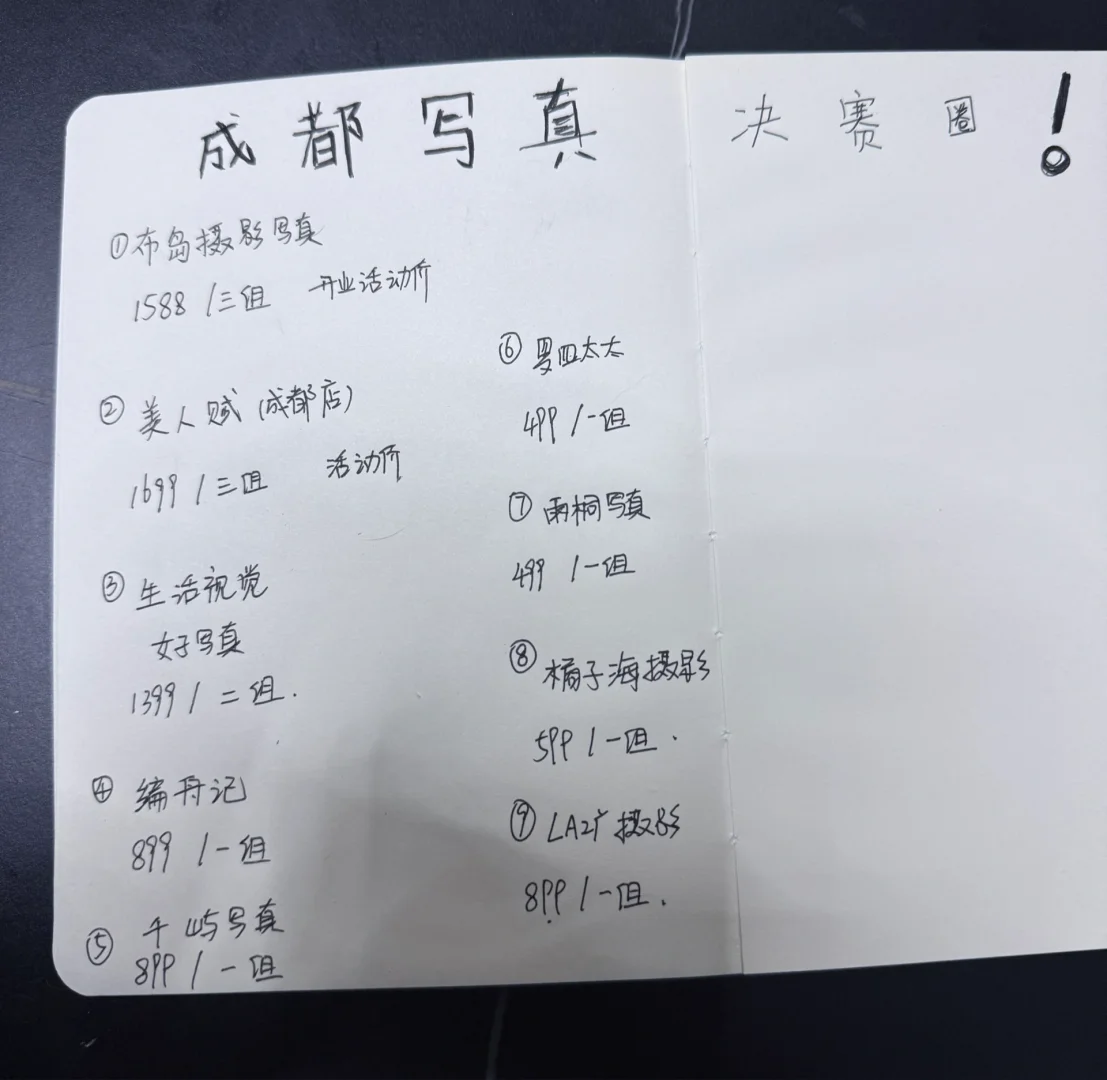 成都写真 决赛圈!
①布岛摄影写真
1588 /三组 开业活动价
②美人赋(成都店)
1699 /三组 活动价
③生活视觉
女子写真
1399 / 二组.
④编舟记
899 /一组
⑤千屿写真
899 / 一组
⑥罗四太太
499 /一组
⑦雨桐写真
499 /一组
⑧橘子海摄影
599 /一组.
⑨ 摄影
899 /一组.